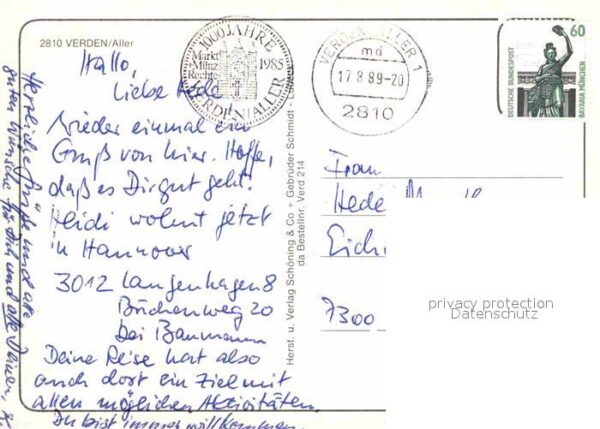 2810 VERDEN/Aller
1000 JAHRE
Markt
Münz
Rechte
1985
VERDEN/ALLER
VERDEN, ALLER 1
md
17.8.89-20
2810
60
DEUTSCHE BUNDESPOST
BAVARIA MÜNCHEN
Hallo,
Liebe Hede
Wieder einmal ein
Gruß von hier. Hoffe,
daß es Dir gut geht.
Heidi wohnt jetzt
in Hannover
3012 Langenhagen 8
Büchenweg 20
bei Baumann
Deine Reise hat also
auch dort ein Ziel mit
allen möglichen Aktivitäten.
Du bist immer willkommen.
Herzliche Grüße und alle
guten Wünsche für Dich und alle Deinen,
Herst. u. Verlag Schöning & Co + Gebrüder Schmidt
da Bestellnr. Verd 214
Frau
Hede
Eich
7300
privacy protection
Datenschutz